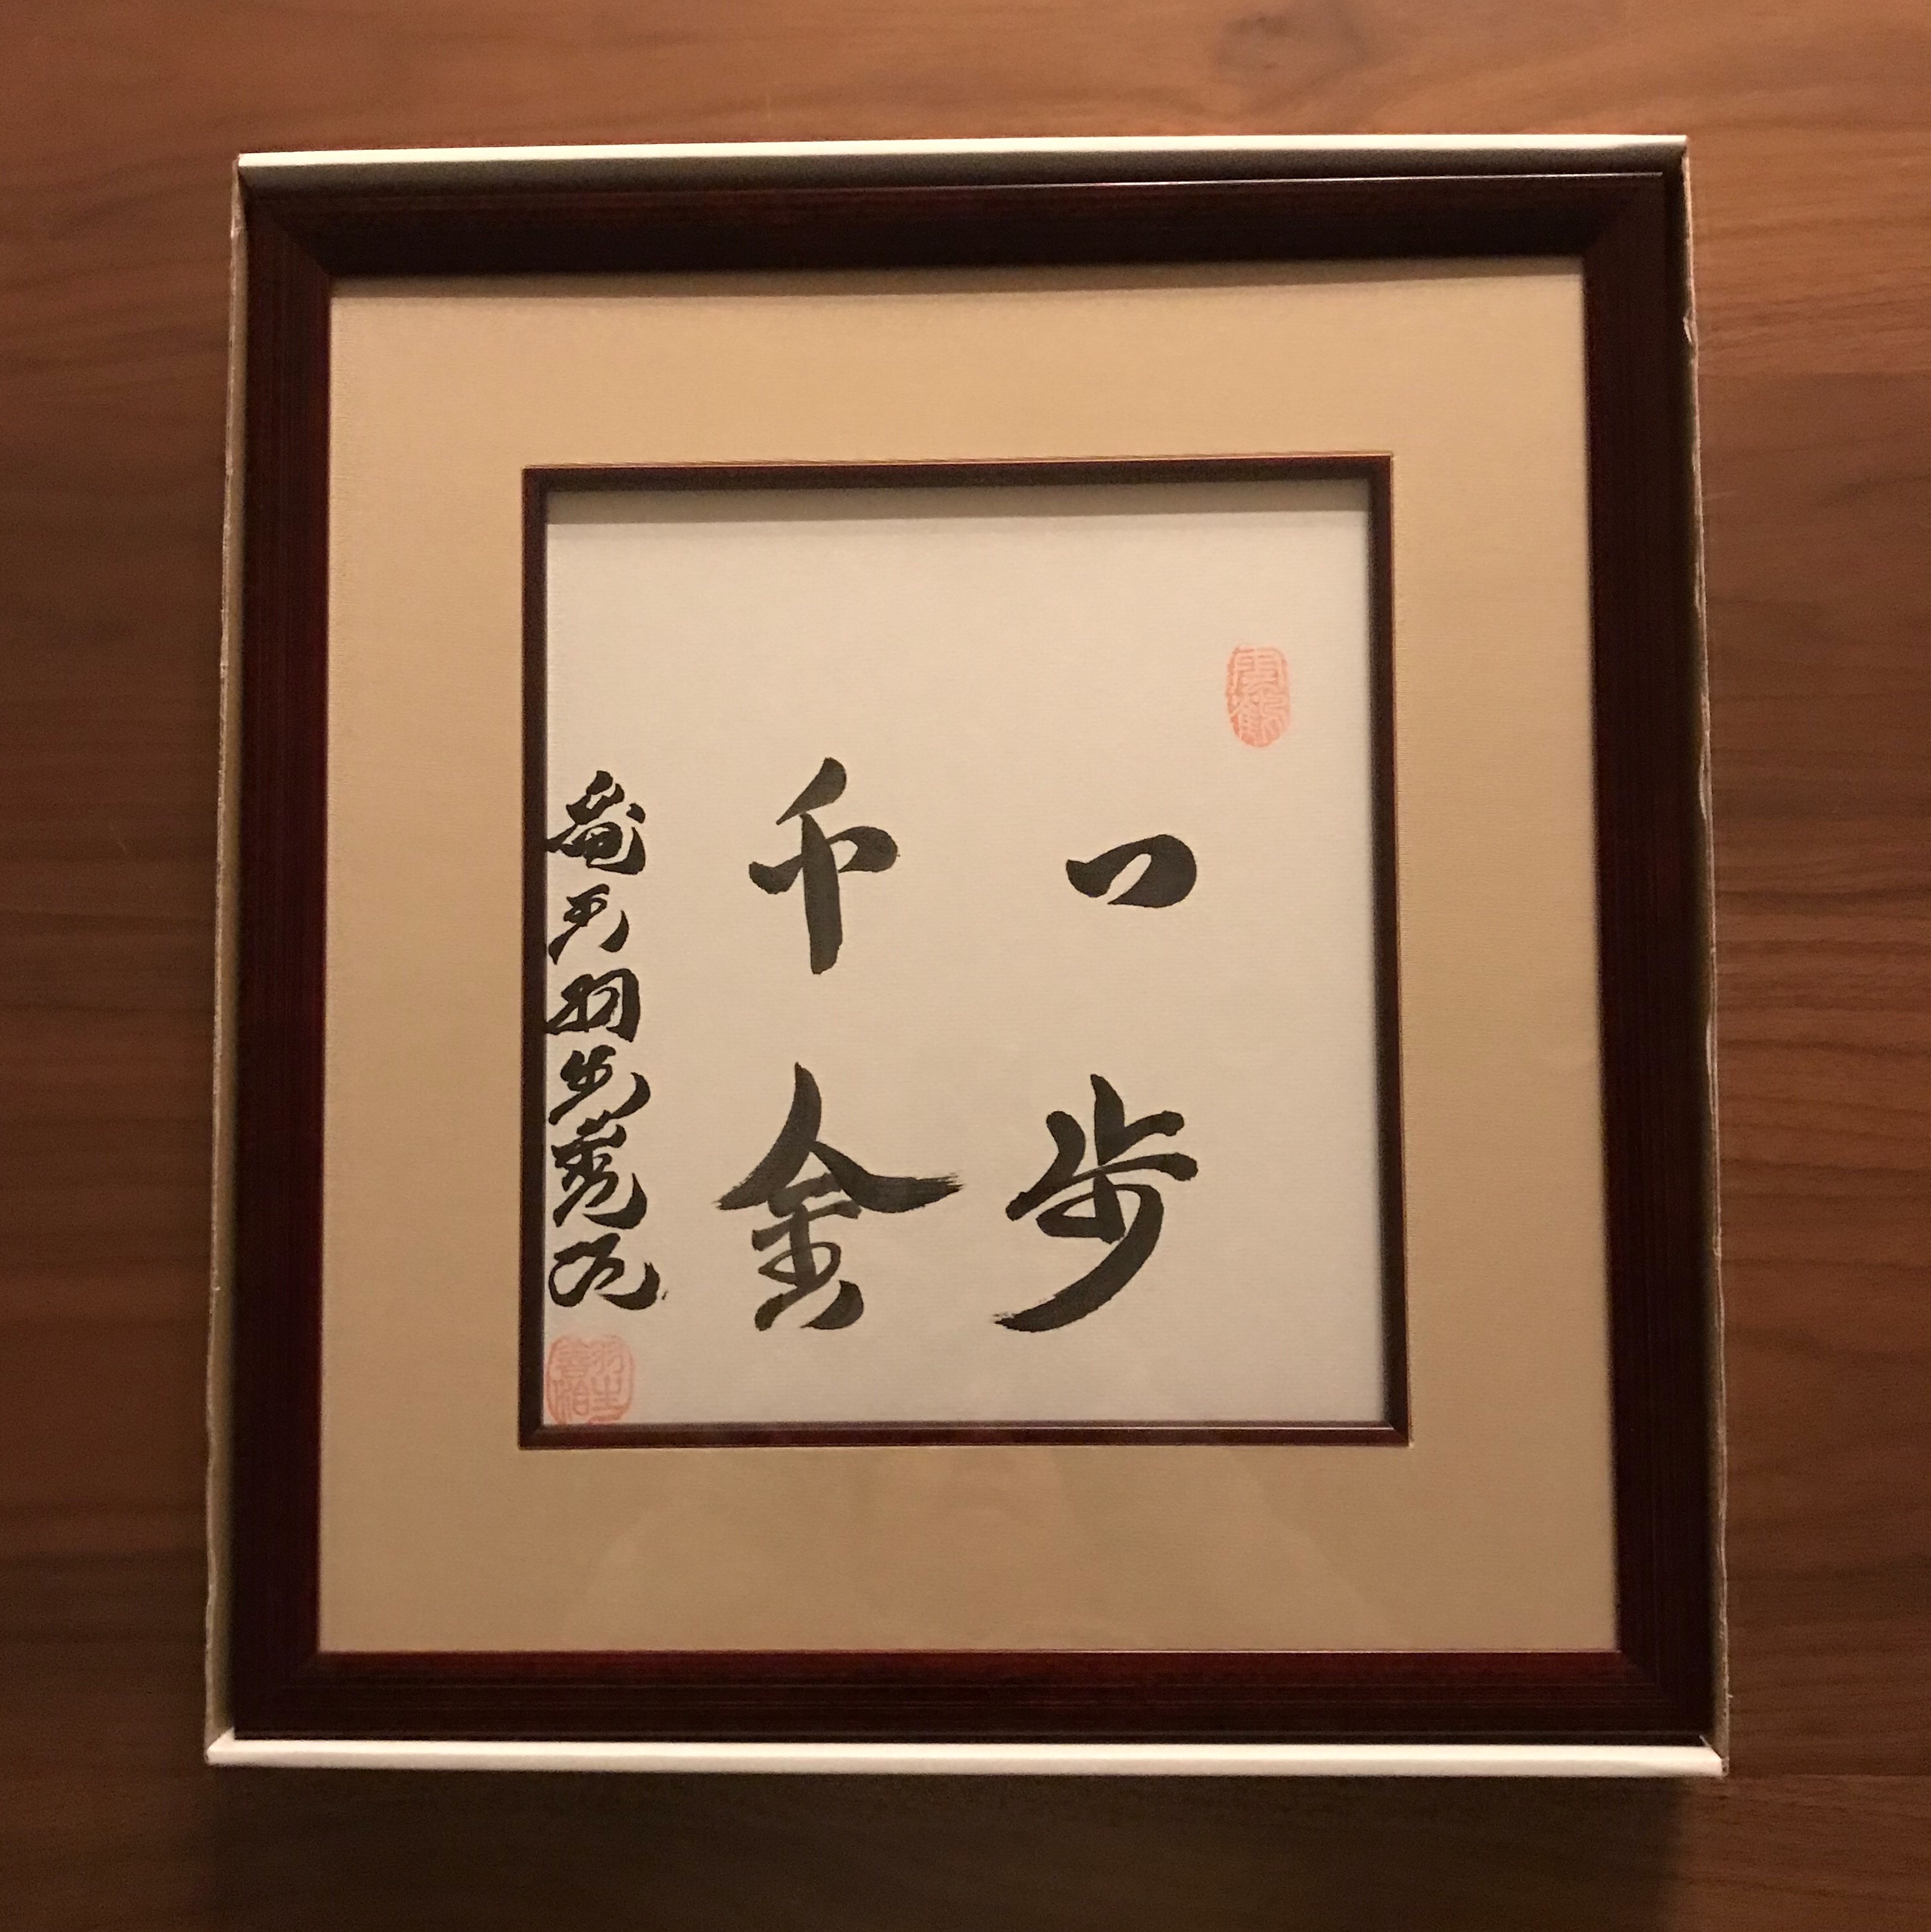 一歩
千金
竜王羽生善治
羽生
善治